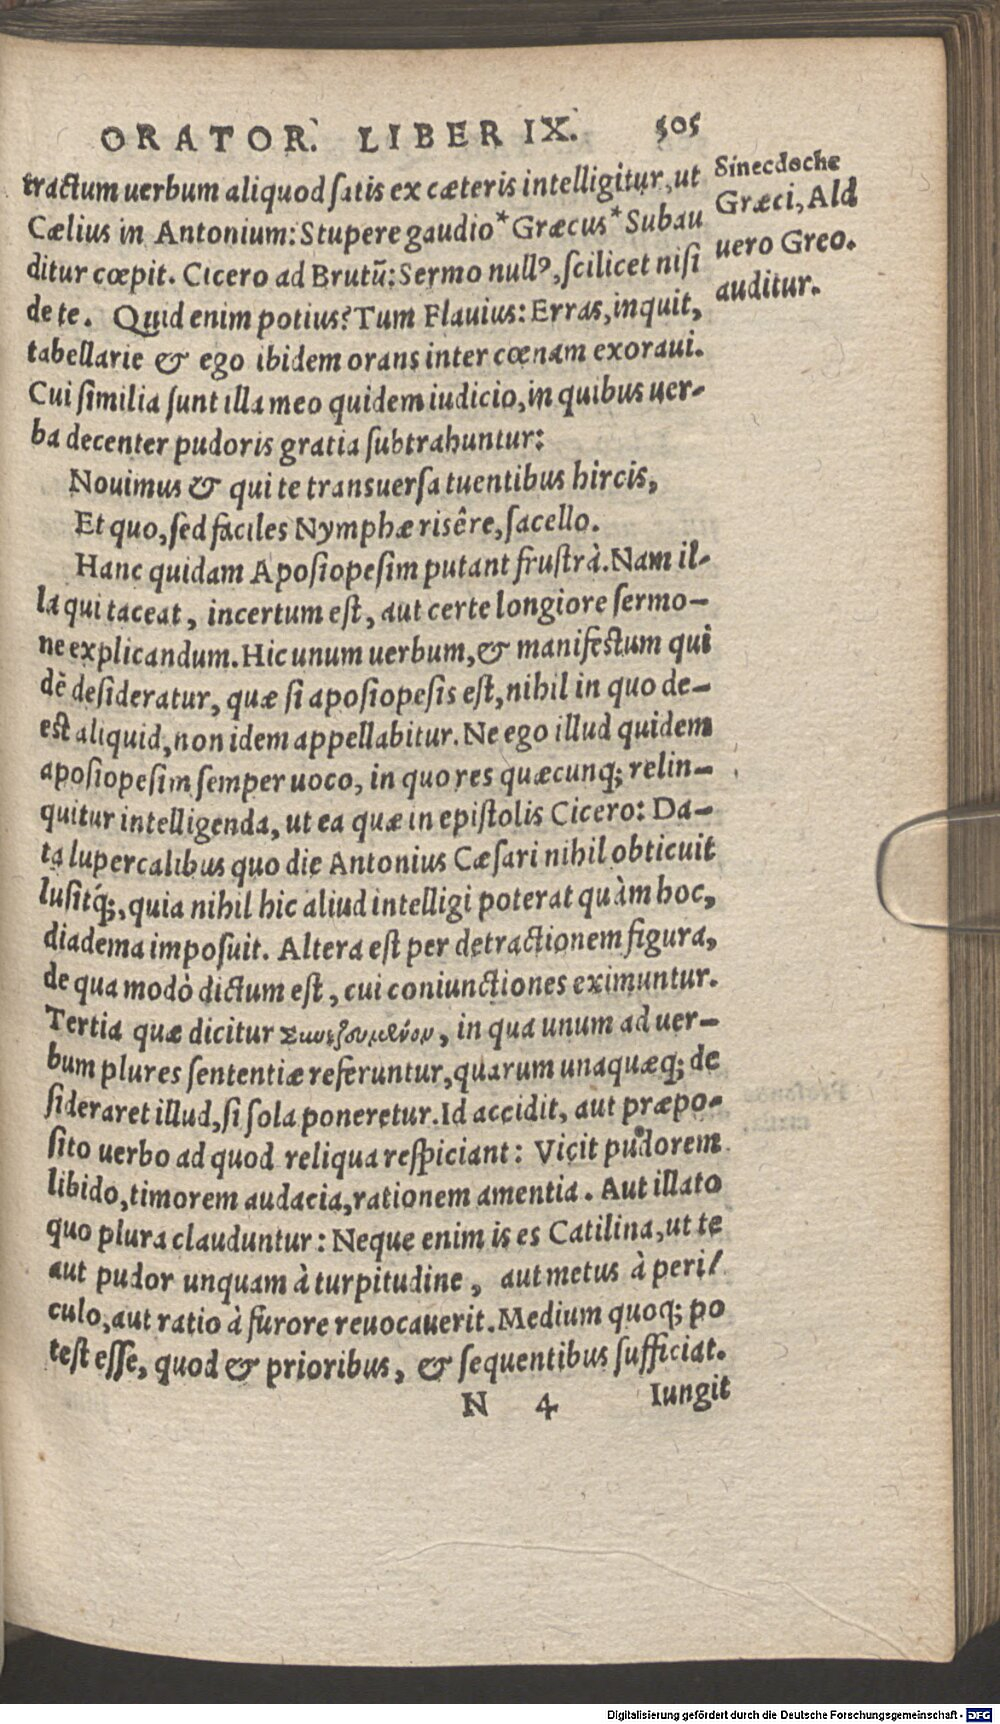 ORATOR. LIBER IX. 505
tractum uerbum aliquod satis ex cæteris intelligitur, ut
Cælius in Antonium: Stupere gaudio * Græcus * Subau
ditur cœpit. Cicero ad Brutũ: Sermo nullꝰ, scilicet nisi
de te. Quid enim potius? Tum Flauius: Erras, inquit,
tabellarie & ego ibidem orans inter cœnam exoraui.
Cui similia sunt illa meo quidem iudicio, in quibus uer-
ba decenter pudoris gratia subtrahuntur:
Nouimus & qui te transuersa tuentibus hircis,
Et quo, sed faciles Nymphæ risêre, sacello.
Hanc quidam Aposiopesim putant frustrà. Nam il-
la qui taceat, incertum est, aut certe longiore sermo-
ne explicandum. Hic unum uerbum, & manifestum qui
dẽ desideratur, quæ si aposiopesis est, nihil in quo de-
est aliquid, non idem appellabitur. Ne ego illud quidem
aposiopesim semper uoco, in quo res quæcunq; relin-
quitur intelligenda, ut ea quæ in epistolis Cicero: Da-
ta lupercalibus quo die Antonius Cæsari nihil obticuit
lusitq́;, quia nihil hic aliud intelligi poterat quàm hoc,
diadema imposuit. Altera est per detractionem figura,
de qua modò dictum est, cui coniunctiones eximuntur.
Tertia quæ dicitur Συνεζουμένον, in qua unum ad uer-
bum plures sententiæ referuntur, quarum unaquæq; de
sideraret illud, si sola poneretur. Id accidit, aut præpo-
sito uerbo ad quod reliqua respiciant: Vicit pudorem
libido, timorem audacia, rationem amentia. Aut illato
quo plura clauduntur: Neque enim is es Catilina, ut te
aut pudor unquam à turpitudine, aut metus à peri/
culo, aut ratio à furore reuocauerit. Medium quoq; po
test esse, quod & prioribus, & sequentibus sufficiat.
N 4 Iungit
Sinecdoche
Græci, Ald
uero Greo.
auditur.
Digitalisierung gefördert durch die Deutsche Forschungsgemeinschaft - DFG